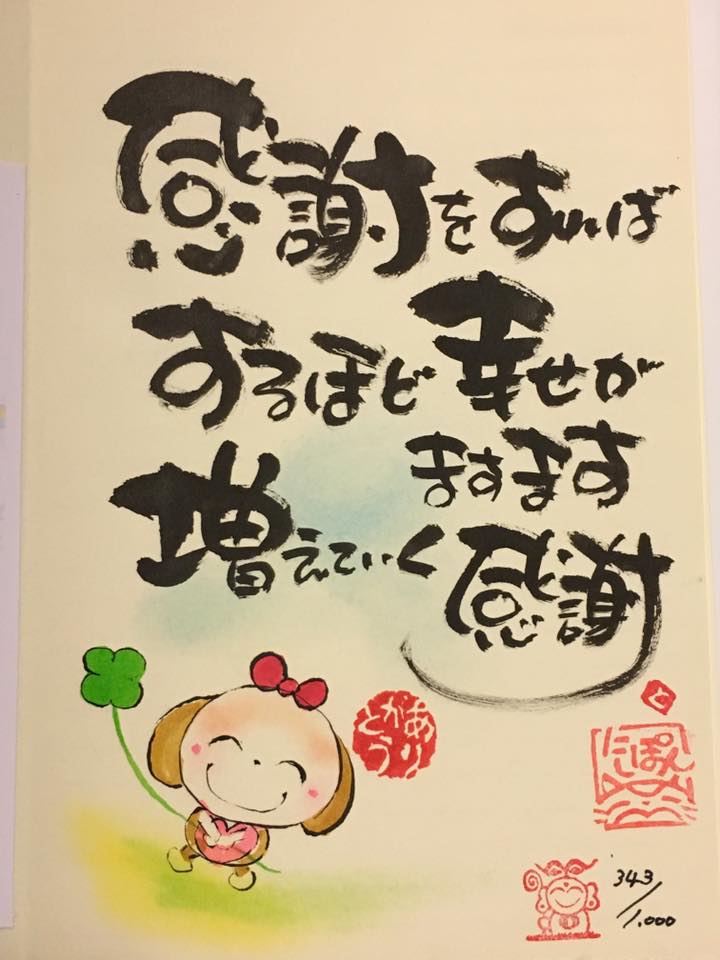 感謝をすれば
するほど幸せが
ますます
増えていく感謝
ありがとう
と
343/1.000